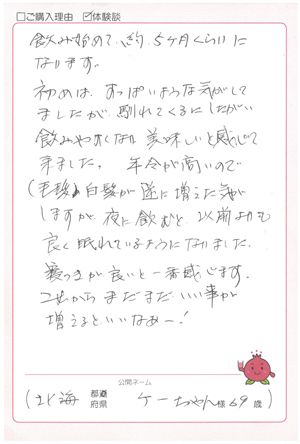 □ご購入理由 ☑体験談
飲み始めて、約、5ヶ月くらいに
なります。
初めは、すっぱいような気がして
ましたが、馴れてくるにしたがい
飲みやすくなり 美味しいと感じて
来ました。 年令が高いので
(毛髪) 白髪が 逆に増えた気が
しますが、夜に飲むと、以前よりも
良く眠れているようになりました。
寝つきが良いと一番感じます。
これからまだまだいい事が
増えるといいなあー!
公開ネーム
(北海 都道府県 ケーちゃん様 69歳)